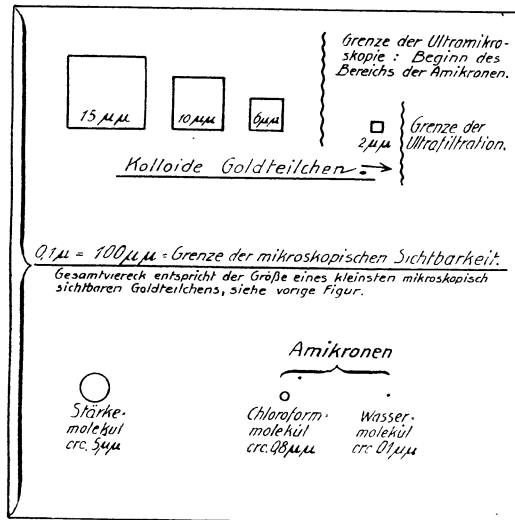 Grenze der Ultramikro-
skopie : Beginn des
Bereichs der Amikronen.
15 µµ
10 µµ
6µµ
2µµ
Grenze der
Ultrafiltration.
Kolloide Goldteilchen
0,1µ = 100µµ = Grenze der mikroskopischen Sichtbarkeit.
Gesamtviereck entspricht der Größe eines kleinsten mikroskopisch
sichtbaren Goldteilchens, siehe vorige Figur.
Amikronen
Stärke-
molekül
crc. 5µµ
Chloroform-
molekül
crc. 0,8µµ
Wasser-
molekül
crc 01µµ